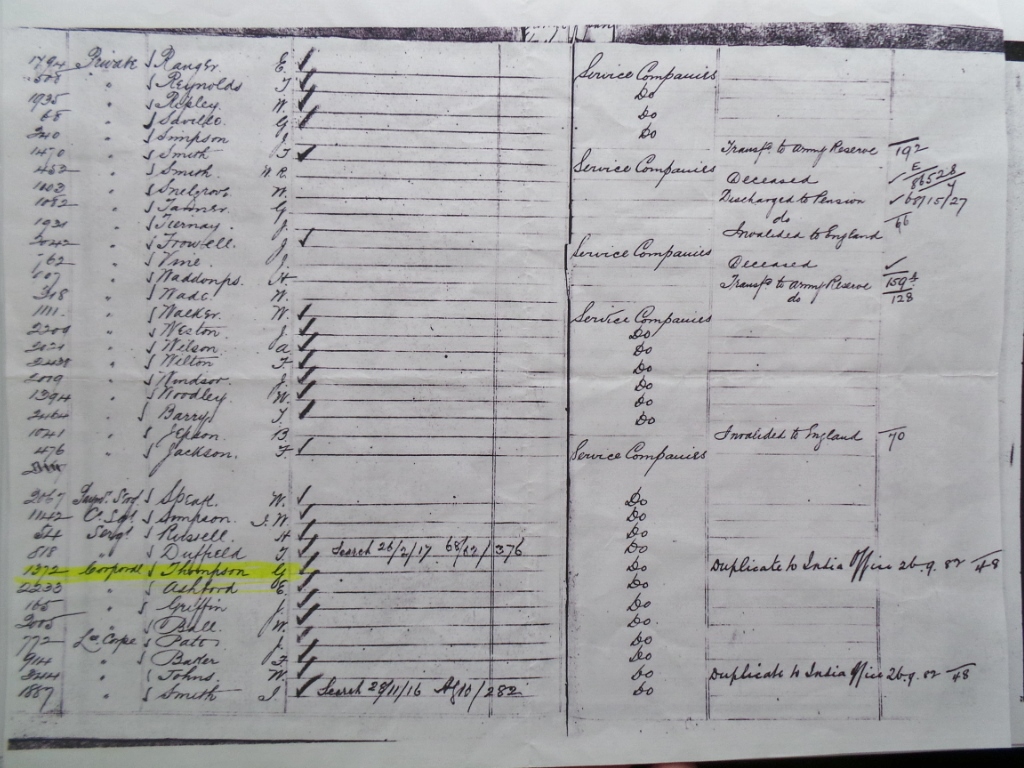 1794 Private Ranger E. Service Companies
508 " Reynolds T Do
1935 " Ripley W. Do
68 " Saville G Do
240 " Simpson J.
1470 " Smith T Transfd to Army Reserve 192
462 " Smith W.R. Service Companies
1103 " Snelgrove W. Deceased E 86528
1082 " Tanner G Discharged to Pension 68/15/27
1931 " Tiernay J. do 66
2042 " Trowell J Invalided to England
762 " Vine J. Service Companies
107 " Waddomps H. Deceased
318 " Wade W. Transfd to Army Reserve 159
1111 " Walker W. Service Companies do 128
2200 " Weston J. Do
2021 " Wilson a Do
" Wilton F Do
2019 " Windsor J. Do
1394 " Woodley W. Do
2464 " Barry T Do
1041 " Jepson B. Invalided to England 70
476 " Jackson F Service Companies
2067 Speak W. Do
1142 Cr Sgt Simpson J.W. Do
54 Sergt Russell H Do
518 " Duffield T Search 26/2/17 68/62/376 Do
1372 Corporal Thompson G Do Duplicate to India Office 26.9.82 48
2233 " Ashford E. Do
165 " Griffin J. Do
2005 " Ball W. Do
772 Lce Corpl Pates J. Do
914 " Baker F. Do
244 " Johns W. Do Duplicate to India Office 26.9.82 48
1887 " Smith J. Search 28/11/16 Do